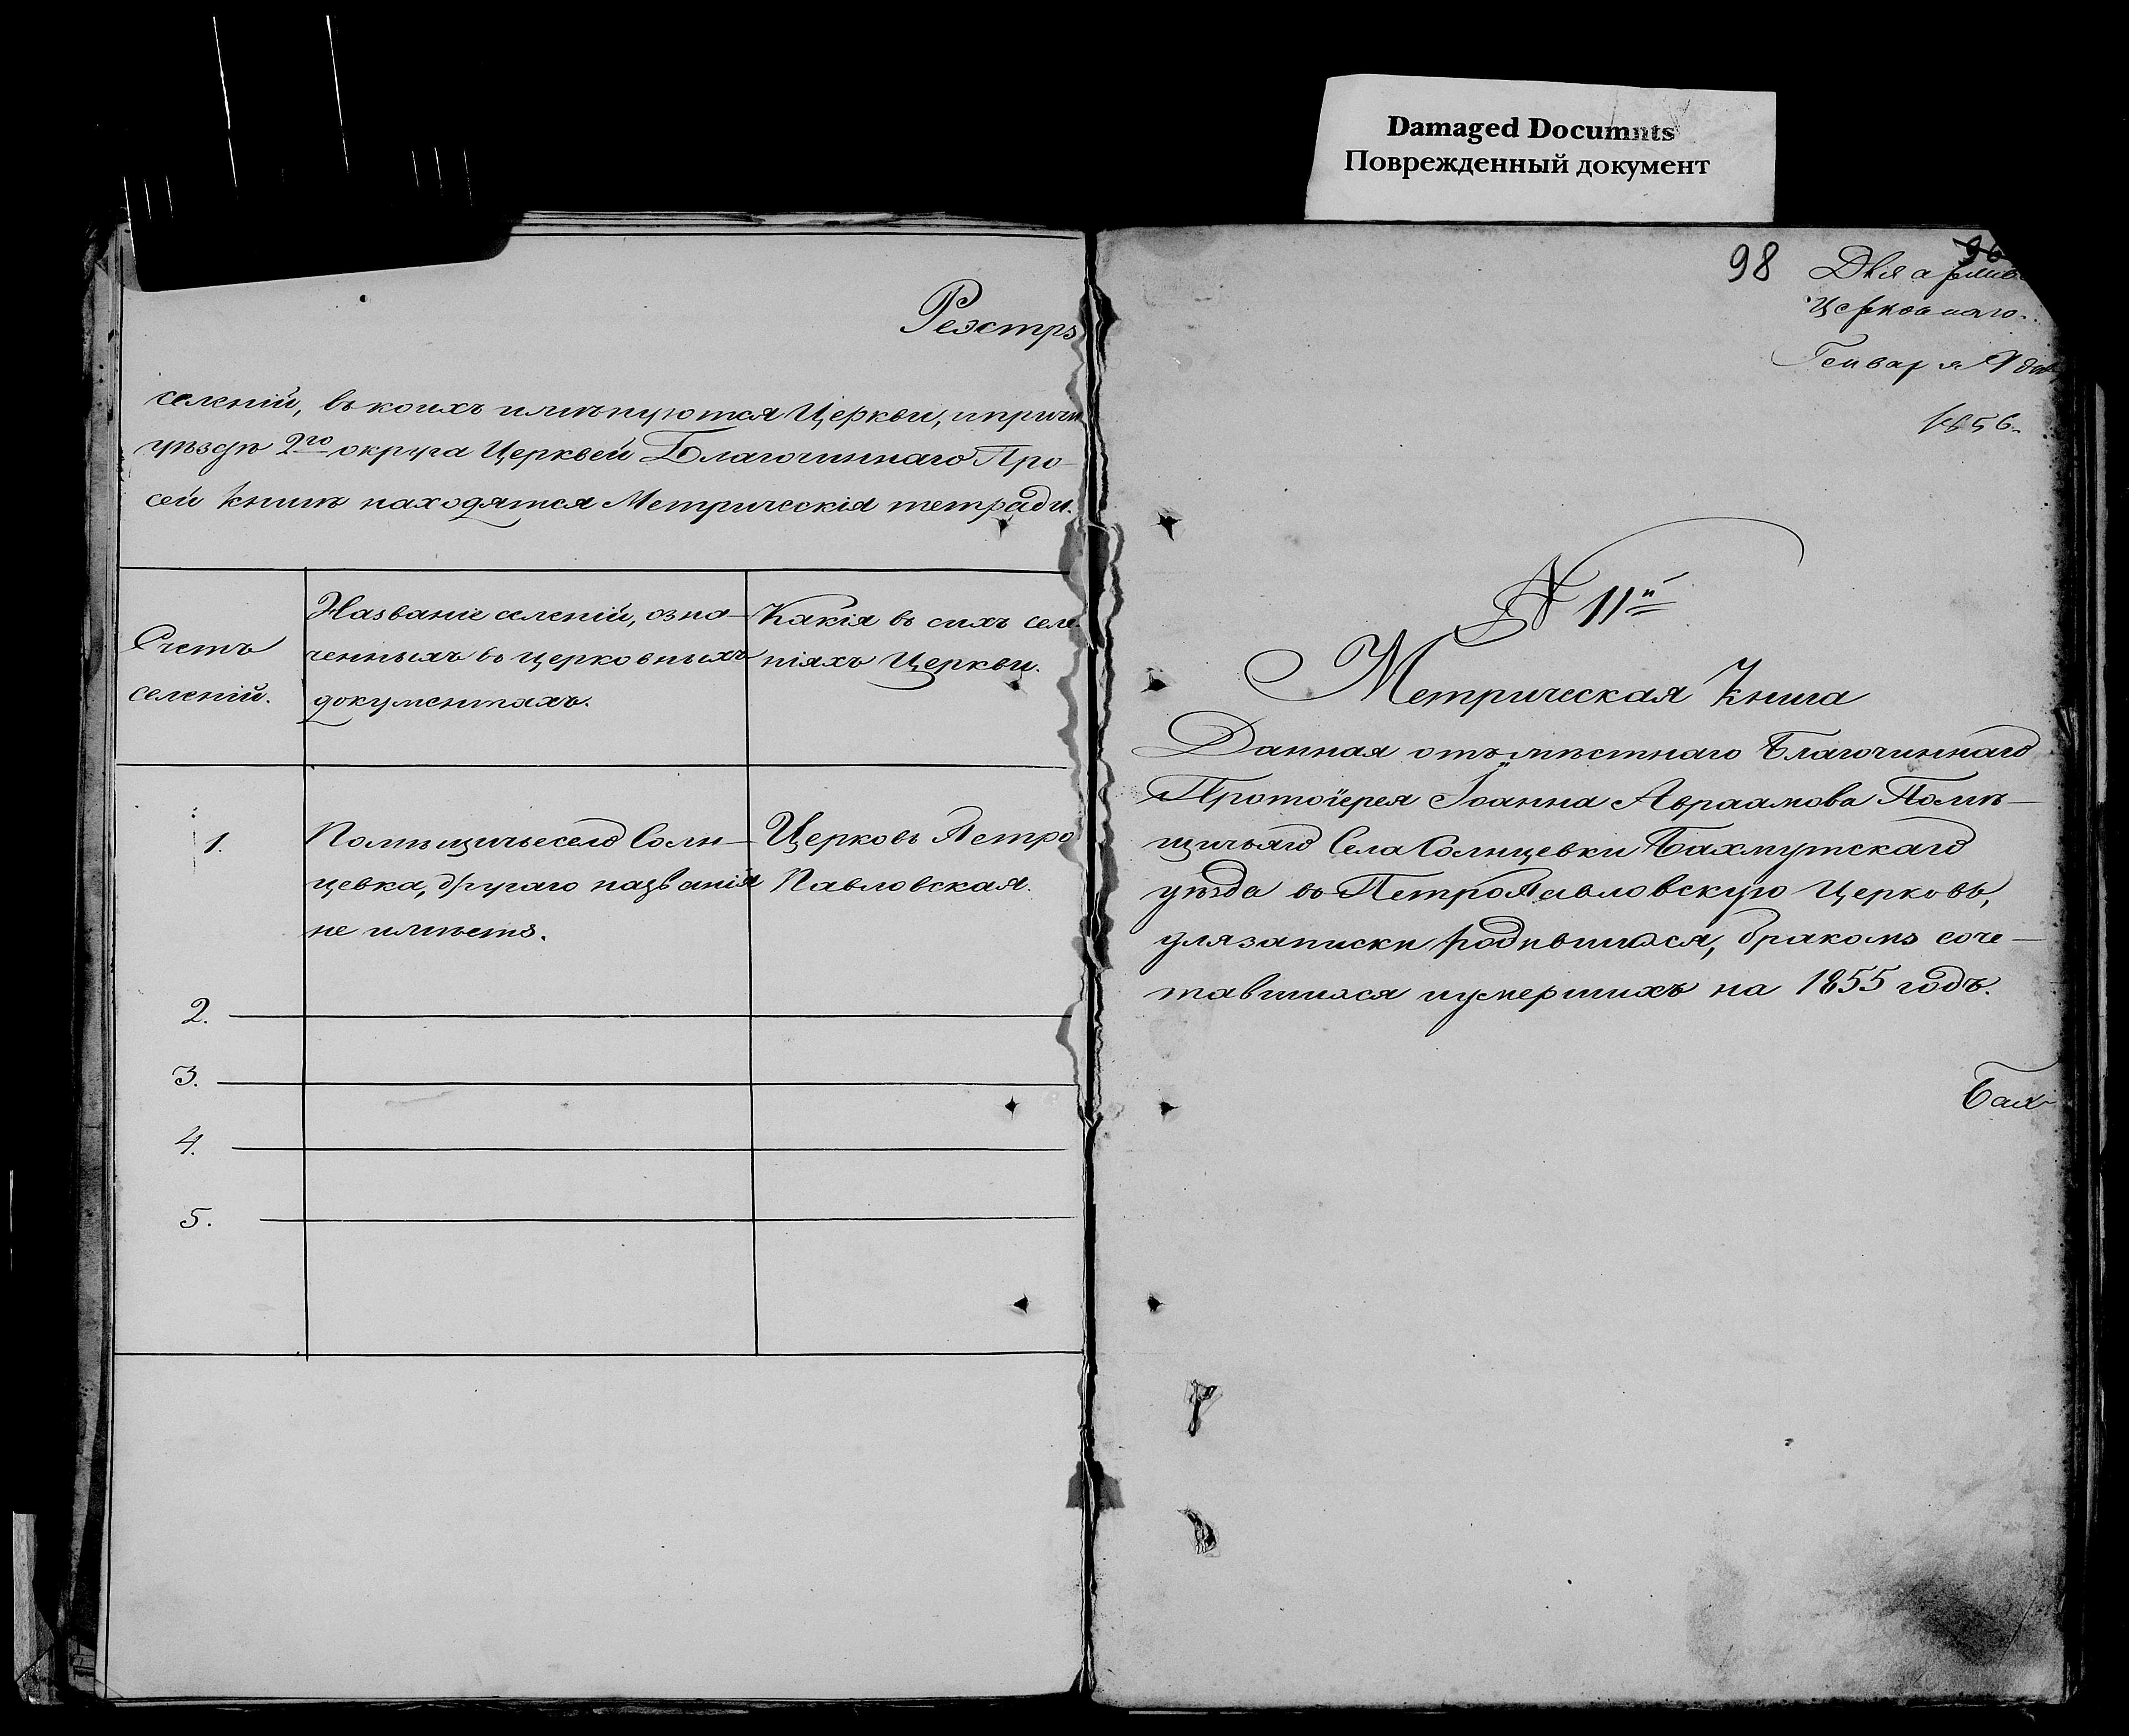 Damaged Documnts
Поврежденный документ
Реэстръ
селеній, въ коихъ имѣнуются Церкви, и причи
уѣздѣ 2го округа Церквей Благочиннаго Про-
сей книгѣ находятся Метрическія тетради.
Счетъ
селеній.
Названіе селеній, озна-
ченныхъ въ церковныхъ
документахъ.
Какія въ сихъ селе-
ніяхъ Церкви.
1.
Помѣщичье село Солн-
цевка, другаго названія
не имѣетъ.
Церковь Петро
Павловская.
2.
3.
4.
5.
98
96
Для архив
Церковнаго.
Генваря 9 дня
1856.
N 11й
Метрическая Книга
Данная отъ мѣстнаго Благочиннаго
Протоіерея Іоанна Авраамова Помѣ-
щичьяго Села Солнцевки Бахмутскаго
уѣзда въ ПетроПавловскую Церковь,
для записки родившихся, бракомъ соче-
тавшихся и умершихъ на 1855 годъ.
Бах-